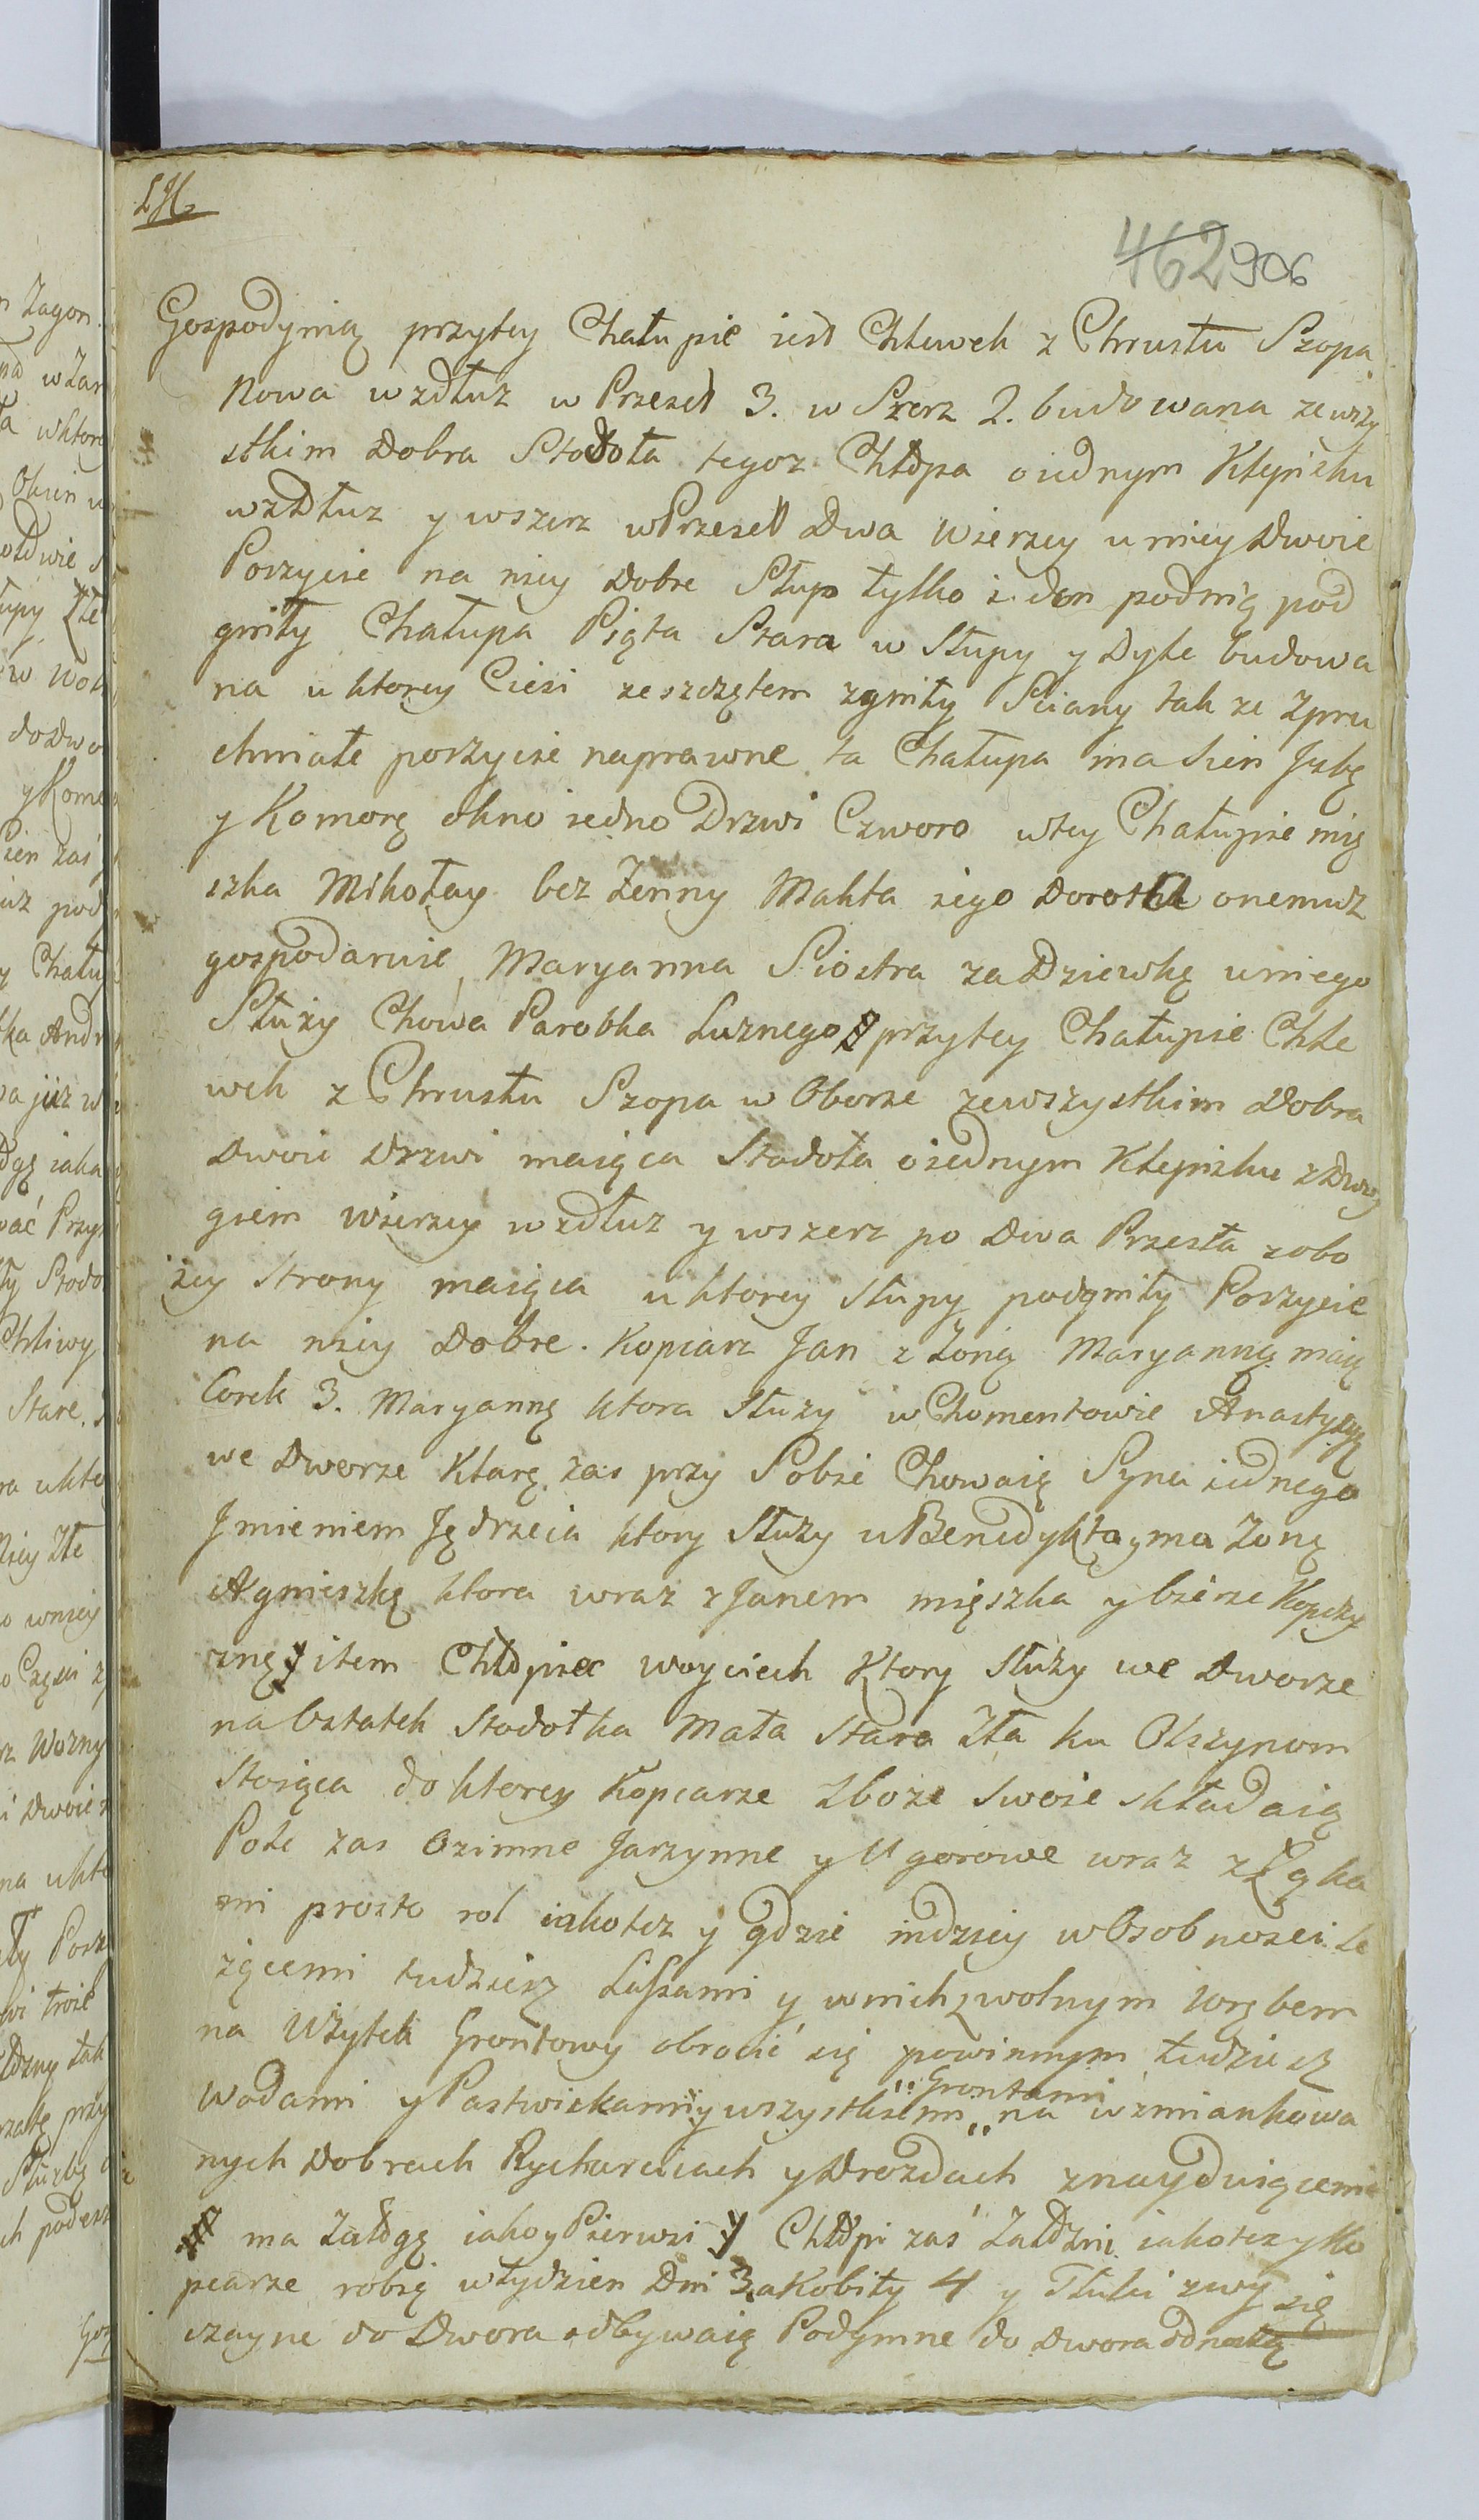 LH
462 906
Gospodynią przytey Chałupie iest Chlewek z Chrustu Szopa
Nowa wzdłuz w Przeseł 3. w Szerz 2. budowana zewszy
stkim Dobra Stodoła tegoz Chłopa o iednym Klepisku
wzdłuz y wszerz w Przeseł Dwa Wierzey u niey Dwoie
Poszycie na niey Dobre Słup tylko ieden podnią pod
gniły Chałupa Piąta Stara w Słupy y Dyle budowa
na u ktorey Ciesi zeszczętem zgniły Sciany tak ze zpru
chniałe poszycie naprawne ta Chałupa ma Sien Jzbę
y Komorę okno iedno Drzwi Czworo wtey Chałupie mię
szka Mikołay bez Zenny Matka iego Dorotka onemuz
gospodaruie Maryanna Siostra za Dziewkę uniego
Służy Chowa Parobka Luznego przytey Chałupie Chle
wek z Chrustu Szopa w Oborze zewszystkim Dobra
Dwoie Drzwi maiąca Stodoła oiednym Klepisku z Dwoy
giem Wierzey wzdłuz y wszerz po Dwa Przesła zobo
iey Strony maiąca u ktorey Słupy podgniły Poszycie
na niey Dobre. Kopiarz Jan z Zoną Maryanną maią
Corek 3. Maryannę ktora Służy w Chomentowie Anastyzyą
we Dworze Klarę zas przy Sobie Chowaią Syna iednego
Jmieniem Jędrzeia ktory Służy u Benedykta y ma Zonę
Agnieszkę ktora wraz z Janem mięszka y bierze Kopczy
znę y item Chłopiec Woyciech Ktory Służy we Dworze
na Ostatek Stodołka Mała Stara Zła ku Olszynom
Stoiąca do ktorey Kopiarze Zboze Swoie składaią
Pole zas Ozimne Jarzynne y Ugorowe wraz z Łąka
mi prosto rol iakotez y gdzie indziey w Osobnosci Le
zącemi tudziesz Lassami y w nich zwolnym Wrębem
na Użytek Grontowy obrocić się powinnym tudziesz
Wodami y Pastwiskami y wszystkiemi Grontami na wzmiankowa
nych Dobrach Rycharciach y Drozdach znayduiącemi
ma Załogę iako y Pierwsi y Chłopi zaś Załozni iakotez y Ko
piarze robią wtydzien Dni 3. a Kobity 4 y Tłuki zwy
czayne do Dwora odbywaią Podymne do Dwora odnoszą
się